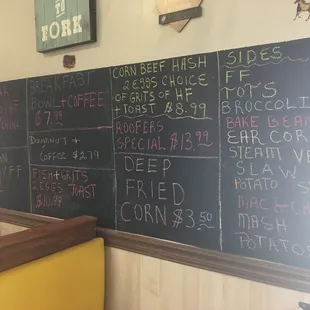 TO
FORK
BREAKFAST
BOWL + COFFEE
$7.99
DOUGHNUT +
COFFEE $2.79
FISH + GRITS
2 EGGS TOAST
CORN BEEF HASH
2 EGGS CHOICE
OF GRITS OF HF
+ TOAST $8.99
ROOFERS
SPECIAL $13.99
DEEP
FRIED
CORN $3.50
SIDES
FF
TOTS
BROCCOLI
BAKE BEA
EAR COR
STEAM VE
SLAW
POTATO
MAC & CH
MASH
POTATO